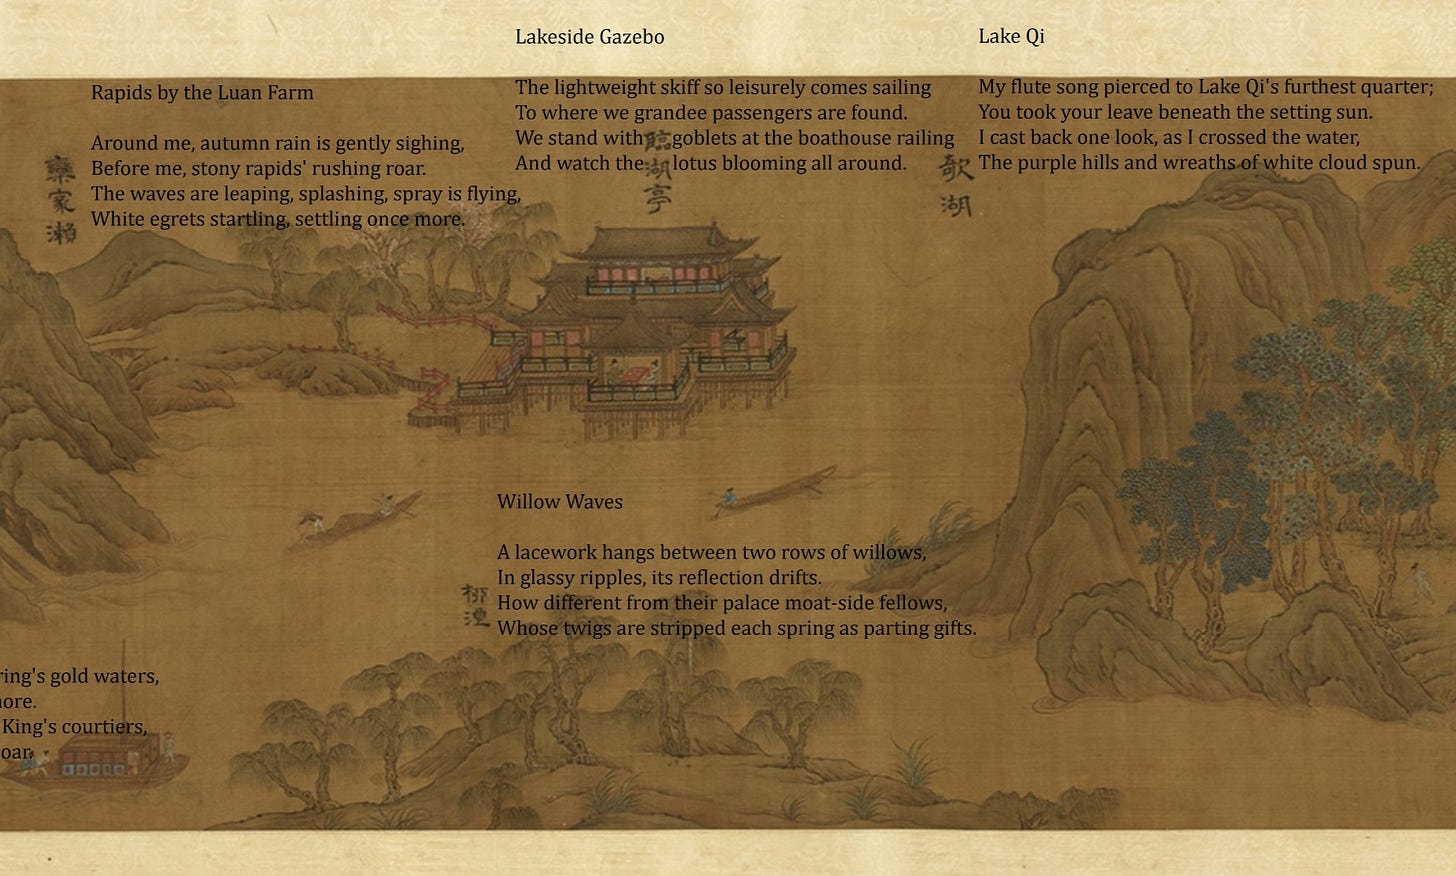 Rapids by the Luan Farm
Around me, autumn rain is gently sighing,
Before me, stony rapids' rushing roar.
The waves are leaping, splashing, spray is flying,
White egrets startling, settling once more.
欒家瀨
Lakeside Gazebo
The lightweight skiff so leisurely comes sailing
To where we grandee passengers are found.
We stand with goblets at the boathouse railing
And watch the lotus blooming all around.
臨湖亭
Lake Qi
My flute song pierced to Lake Qi's furthest quarter;
You took your leave beneath the setting sun.
I cast back one look, as I crossed the water,
The purple hills and wreaths of white cloud spun.
欹湖
Willow Waves
A lacework hangs between two rows of willows,
In glassy ripples, its reflection drifts.
How different from their palace moat-side fellows,
Whose twigs are stripped each spring as parting gifts.
ring's gold waters,
ore.
King's courtiers,
oar.